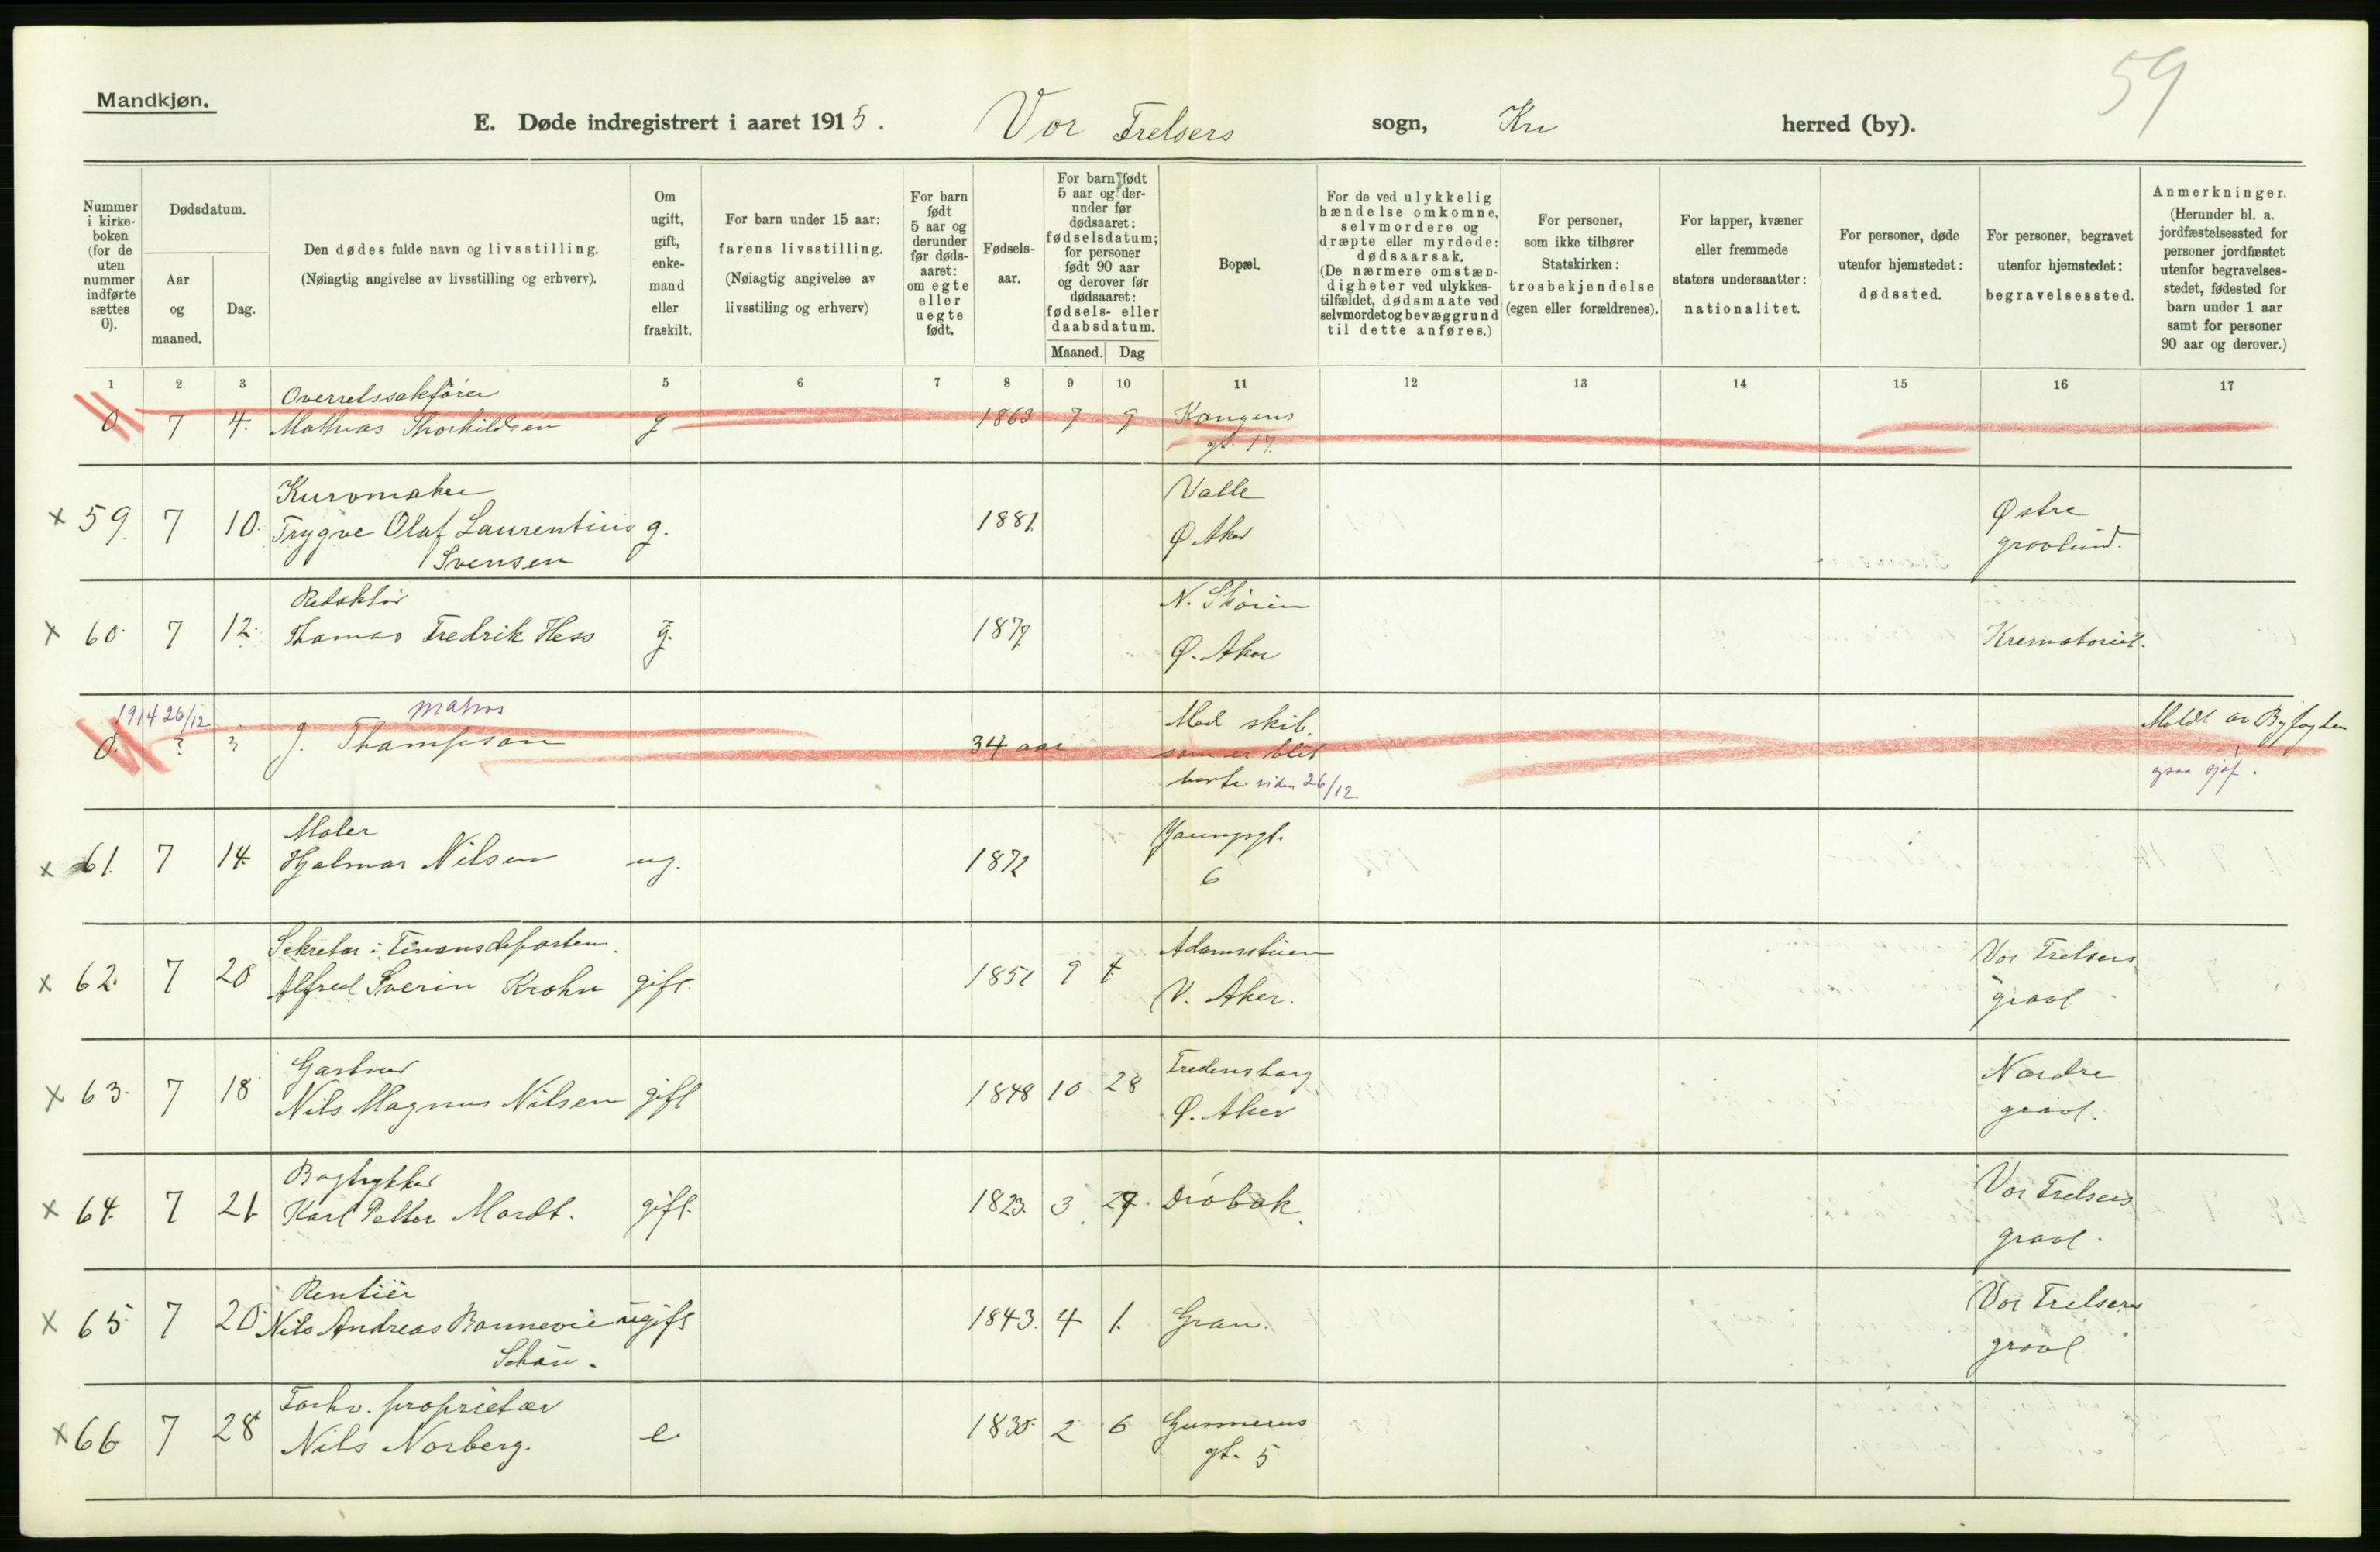 59
Mandkjøn.
E. Døde indregistrert i aaret 1915. Vor Frelsers sogn, Kra herred (by).
Nummer i kirke-boken (for de uten nummer indførte sættes 0).
Dødsdatum.
Aar og maaned.
Dag.
Den dødes fulde navn og livsstilling.
(Nøiagtig angivelse av livsstilling og erhverv).
Om ugift, gift, enke-mand eller fraskilt.
For barn under 15 aar: farens livsstilling.
(Nøiagtig angivelse av livsstiling og erhverv)
For barn født 5 aar og derunder før døds-aaret: om egte eller uegte født.
Fødsels-aar.
For barn født 5 aar og der-under før dødsaaret: fødselsdatum; for personer født 90 aar og derover før dødsaaret: fødsels- eller daabsdatum.
Maaned. Dag
Bopæl.
For de ved ulykkelig hændelse omkomne, selvmordere og dræpte eller myrdede: dødsaarsak.
(De nærmere omstæn-digheter ved ulykkes-tilfældet, dødsmaate ved selvmordet og bevæggrund til dette anføres.)
For personer, som ikke tilhører Statskirken: trosbekjendelse (egen eller forældrenes).
For lapper, kvæner eller fremmede staters undersaatter: nationalitet.
For personer, døde utenfor hjemstedet: dødssted.
For personer, begravet utenfor hjemstedet: begravelsessted.
Anmerkninger.
(Herunder bl. a. jordfæstelsessted for personer jordfæstet utenfor begravelses-stedet, fødested for barn under 1 aar samt for personer 90 aar og derover.)
1 2 3 5 6 7 8 9 10 11 12 13 14 15 16 17
Overretssakfører
0 7 4. Mathias Thorkildsen g 1863 7 9 Kongens
gt. 17.
Kuromaker Valle
x 59. 7 10. Trygve Olaf Laurentius g. 1881 Østre
Svensen Ø. Aker gravlund.
Redaktør N. Skøien
x 60. 7 12. Thomas Fredrik Hess g. 1877 Krematoriet.
Ø. Aker
1914 26/12 matros Med skib. Meldt av Byfogden
0. ? ? J. Thompson 34 aar som er blit
borte siden 26/12
Maler Youngsgt.
x 61. 7 14. Hjalmar Nilsen ug. 1872 6
Sekretær i Finansdeparten. Adamsstuen Vor Frelsers
x 62. 7 20 Alfred Sverin Krohn gift. 1851 9 4 V. Aker. gravl
Gartner Fredensborg Nordre
x 63. 7 18 Nils Magnus Nilsen gift 1848 10 28 Ø. Aker gravl.
Bogtrykker Vor Frelsers
x 64. 7 21 Karl Petter Mordt. gift. 1823. 3 27. Drøbak. gravl.
Rentier Vor Frelsers
x 65. 7 20. Nils Andreas Bonnevie ugift 1843. 4 1. Gran. gravl
Schøn.
Forhv. proprietær Gunnerus
x 66 7 28 Nils Norberg. e 1830. 2 6 gt. 5